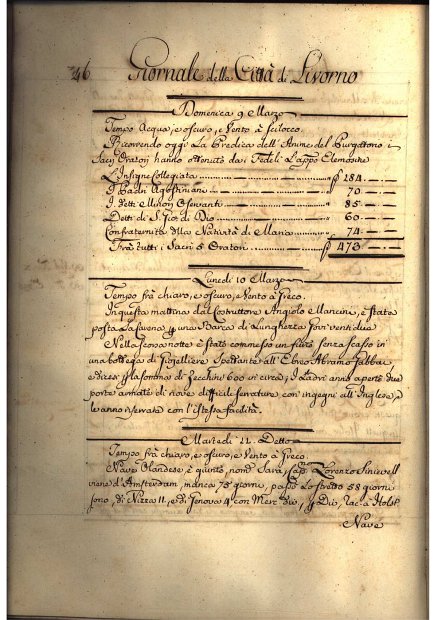 46 Giornale della Città di Livorno
Domenica 9 Marzo
Tempo Acqua, e oscuro, e Vento à Scilocco.
Ricorrendo oggi La Predica dell'Anime del Purgatorio i
Sacri Oratori hanno ottenuto dai Fedeli L'appo Elemosine
L'Insigne Collegiata 184
I Padri Agostiniani 70
I detti Minori Osservanti 85
Detti di S. Gio: di Dio 60
Confraternita della Natività di Maria 74
Frà tutti i Sacri 5 Oratori 473
Lunedì 10 Marzo
Tempo frà chiaro, e oscuro, e Vento à Greco.
In questa mattina dal Costruttore Angiolo Mancini, è stata
posta La Cavena una Barca di Lunghezza Govi venti due
Nella scorsa notte è stato commesso un furto senza scasso in
una bottega di Gioielliere Spettante all'Ebreo Abramo
e la somma di Zecchini 600 in circa, I Ladri anno aperte due
porte armate di nove difficili serrature con ingegni all'Inglese, e
le anno riserrate con l'istessa facilità.
Martedì 11. Detto
Tempo frà chiaro, e oscuro, e Vento à Greco
Nave Olandese, è giunta, nomª Sara, Capº Lorenzo
viene d'Amsterdam, manca 75 giorni, passò Lo Stretto 58 giorni
sono, di Nizza 11, e di Genova 4 con Merc
Nave